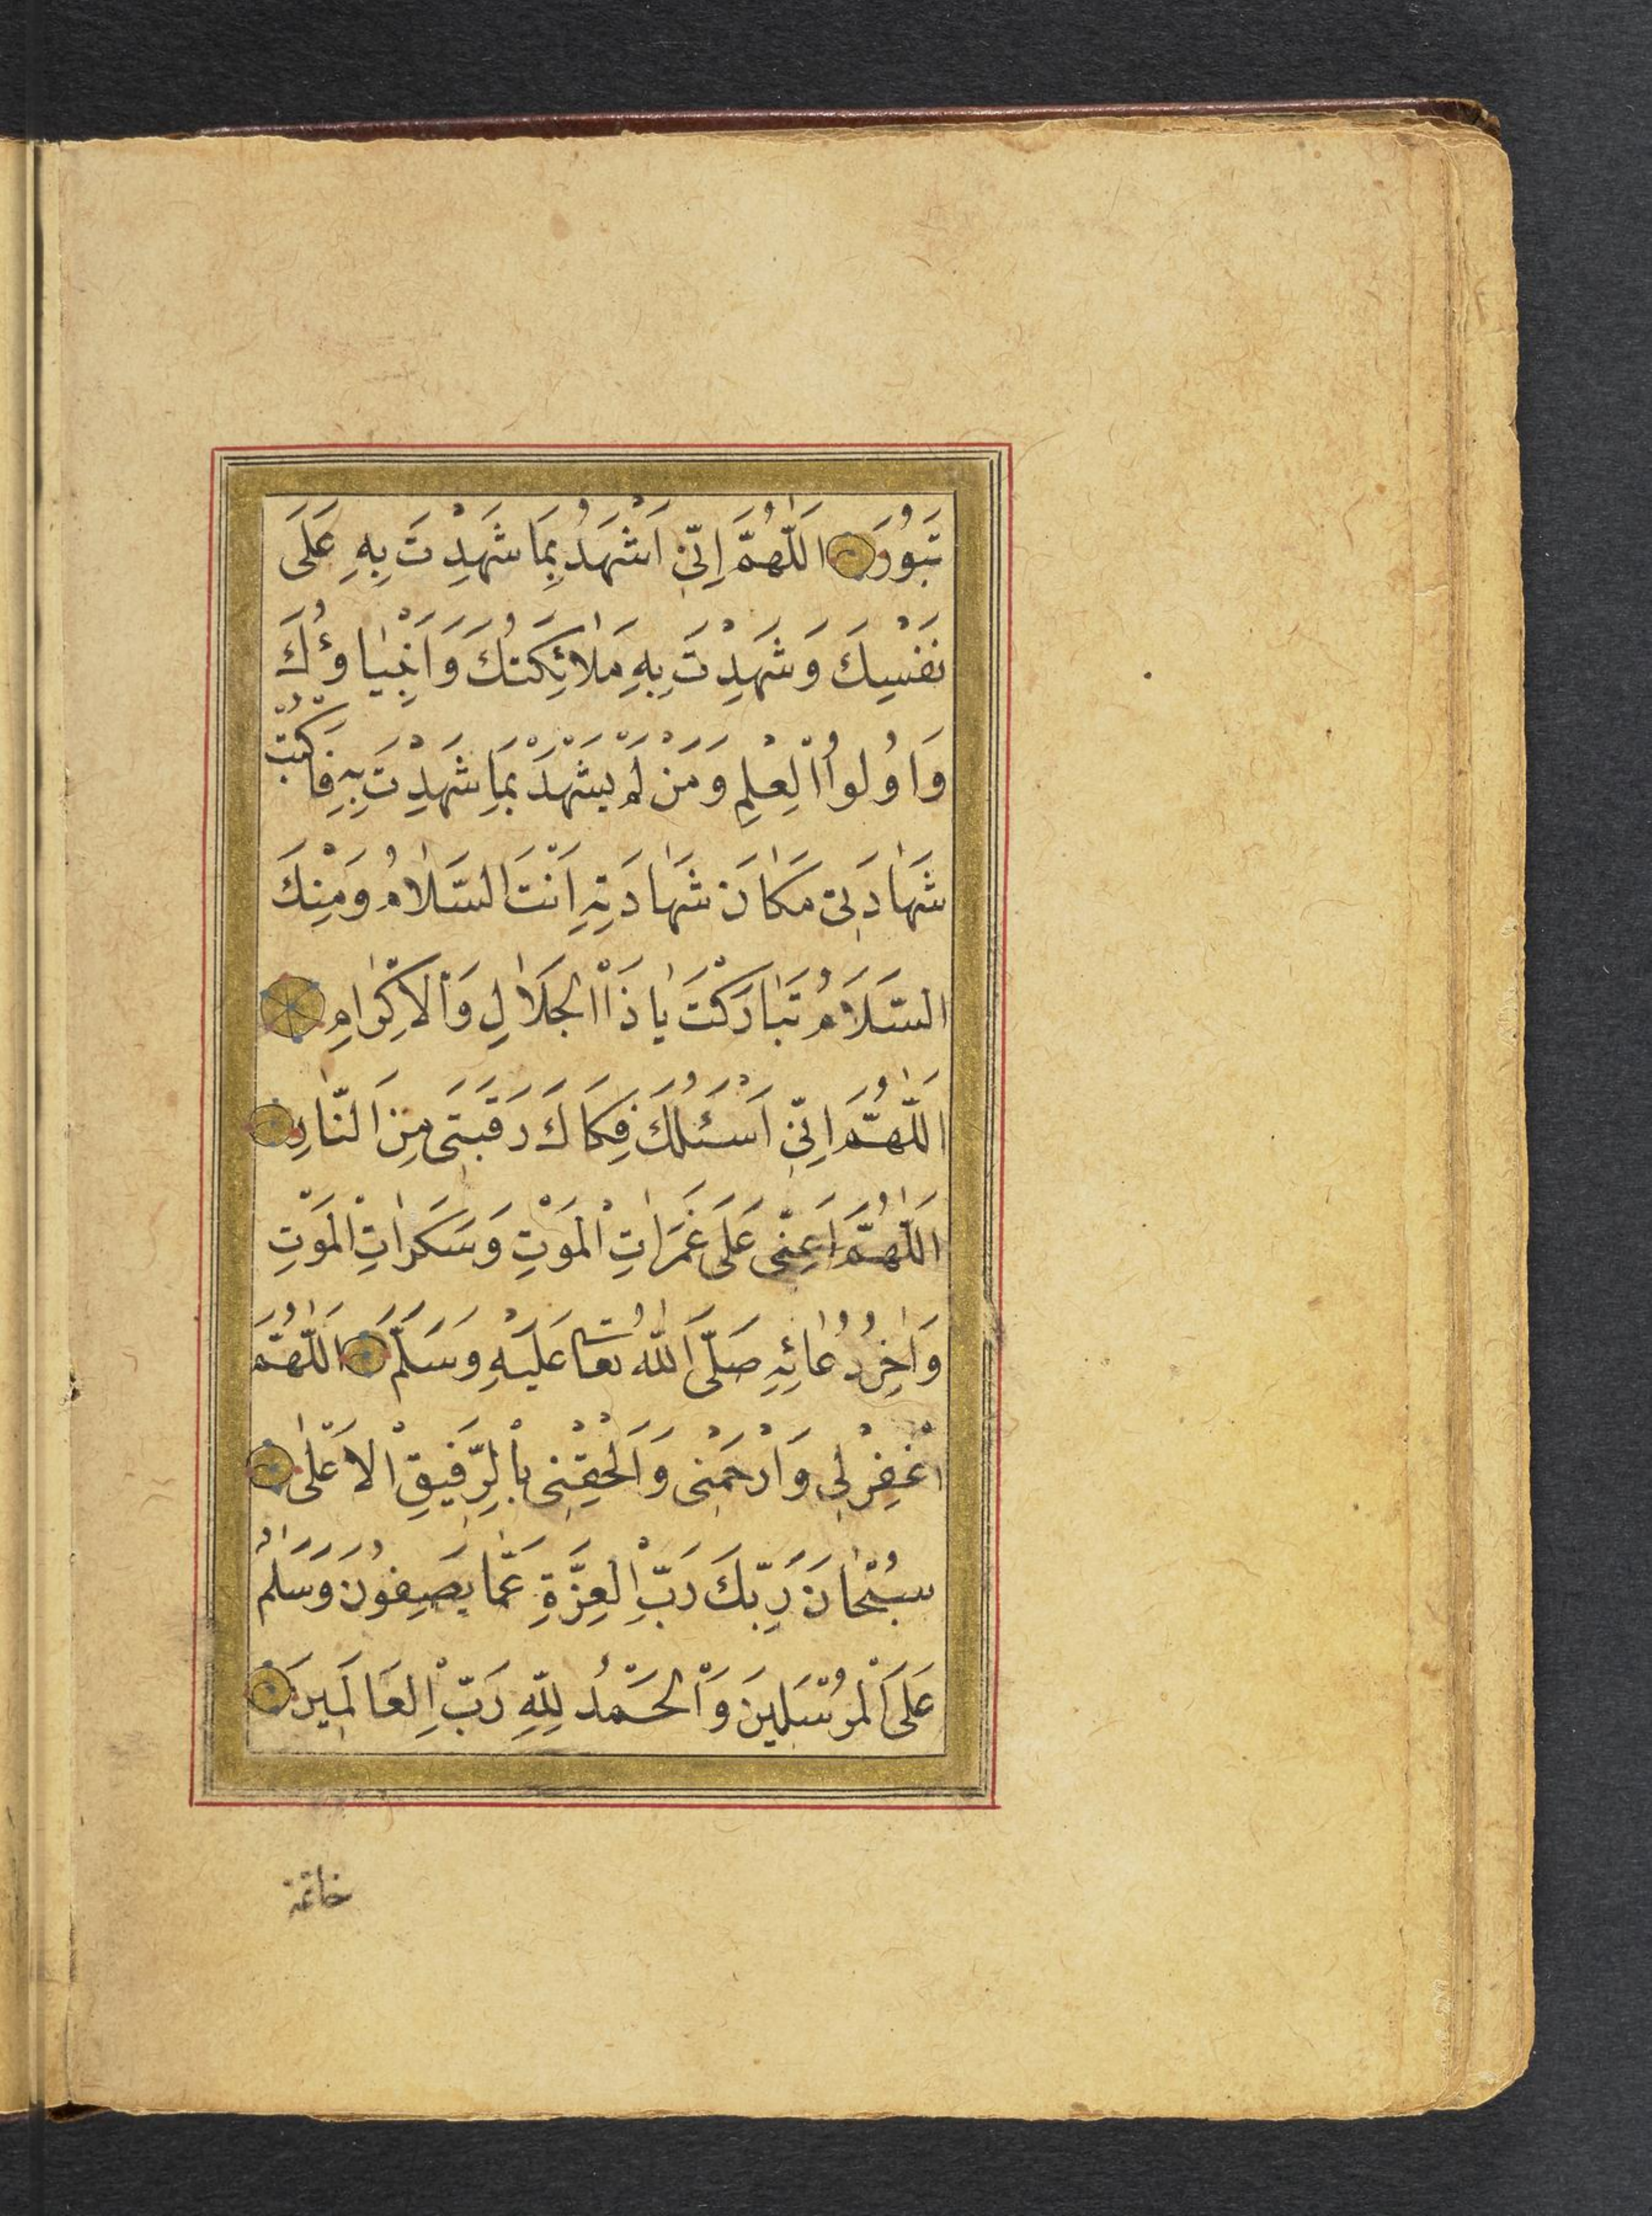 تَبُورَ اَللّٰهُمَّ اِنِّى اَشْهَدُ بِمَا شَهِدْتَ بِهِ عَلَى
نَفْسِكَ وَشَهِدْتَ بِهِ مَلٰائِكَتُكَ وَاَنْبِيٰاؤُكَ
وَاُولُوا الْعِلْمِ وَمَنْ لَمْ يَشْهَدْ بِمَا شَهِدْتَ بِهِ فَاكْتُبْ
شَهٰادَتِى مَكٰانَ شَهٰادَتِهِ اَنْتَ السَّلٰامُ وَمِنْكَ
السَّلَامُ تَبٰارَكْتَ يٰا ذَا الْجَلٰالِ وَالْاِكْرٰامِ
اَللّٰهُمَّ اِنِّى اَسْئَلُكَ فِكَاكَ رَقَبَتِى مِنَ النّٰارِ
اَللّٰهُمَّ اَعِنِّى عَلَى غَمَرٰاتِ الْمَوْتِ وَسَكَرٰاتِ الْمَوْتِ
وَاٰخِرُ دُعٰائِهِ صَلَّى اللّٰهُ تعا عَلَيْهِ وَسَلَّمَ اَللّٰهُمَّ
اغْفِرْ لِى وَارْحَمْنِى وَاَلْحِقْنِى بِالرَّفِيقِ الْاَعْلٰى
سُبْحٰانَ رَبِّكَ رَبِّ الْعِزَّةِ عَمّٰا يَصِفُونَ وَسَلٰمٌ
عَلَى الْمُرْسَلِينَ وَالْحَمْدُ لِلّٰهِ رَبِّ الْعَالَمِينَ
خاتمة